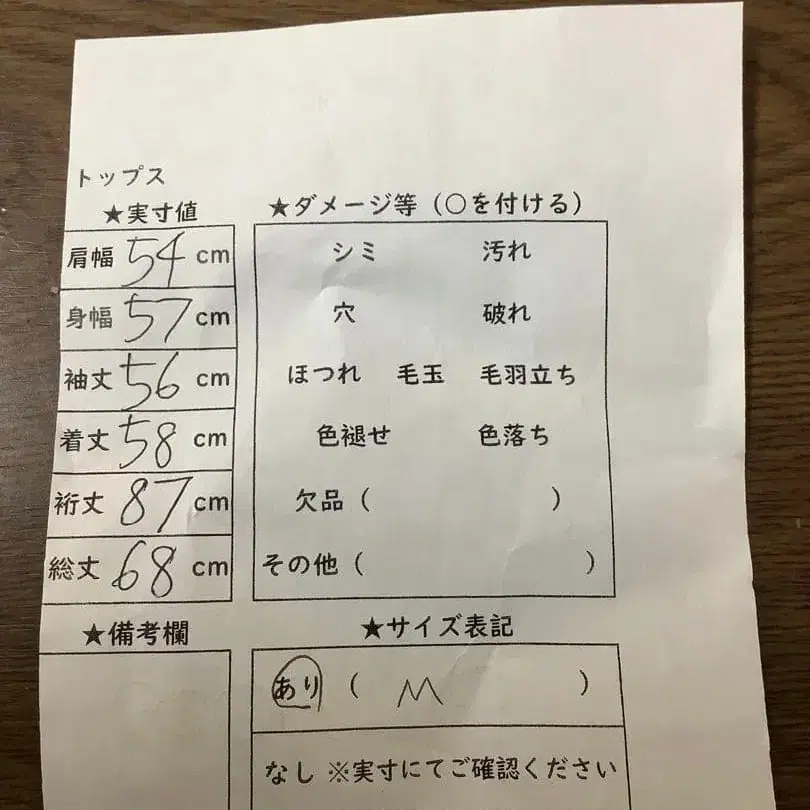 トップス
★実寸値
肩幅 54 cm
身幅 57 cm
袖丈 56 cm
着丈 58 cm
裄丈 87 cm
総丈 68 cm
★備考欄
★ダメージ等（○を付ける）
シミ 汚れ
穴 破れ
ほつれ 毛玉 毛羽立ち
色褪せ 色落ち
欠品（ ）
その他（ ）
★サイズ表記
あり（ M ）
なし ※実寸にてご確認ください